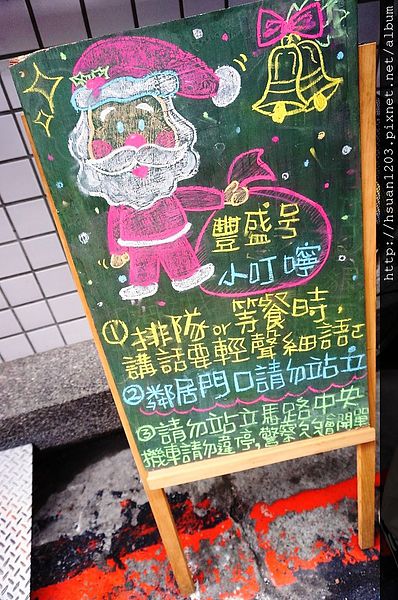 豐盛号
小叮嚀
① 排隊 or 等餐時,
講話要輕聲細語
② 鄰居門口請勿站立
③ 請勿站立馬路中央
機車請勿違停,警察叔叔會開單
http://hsuan1203.pixnet.net/album